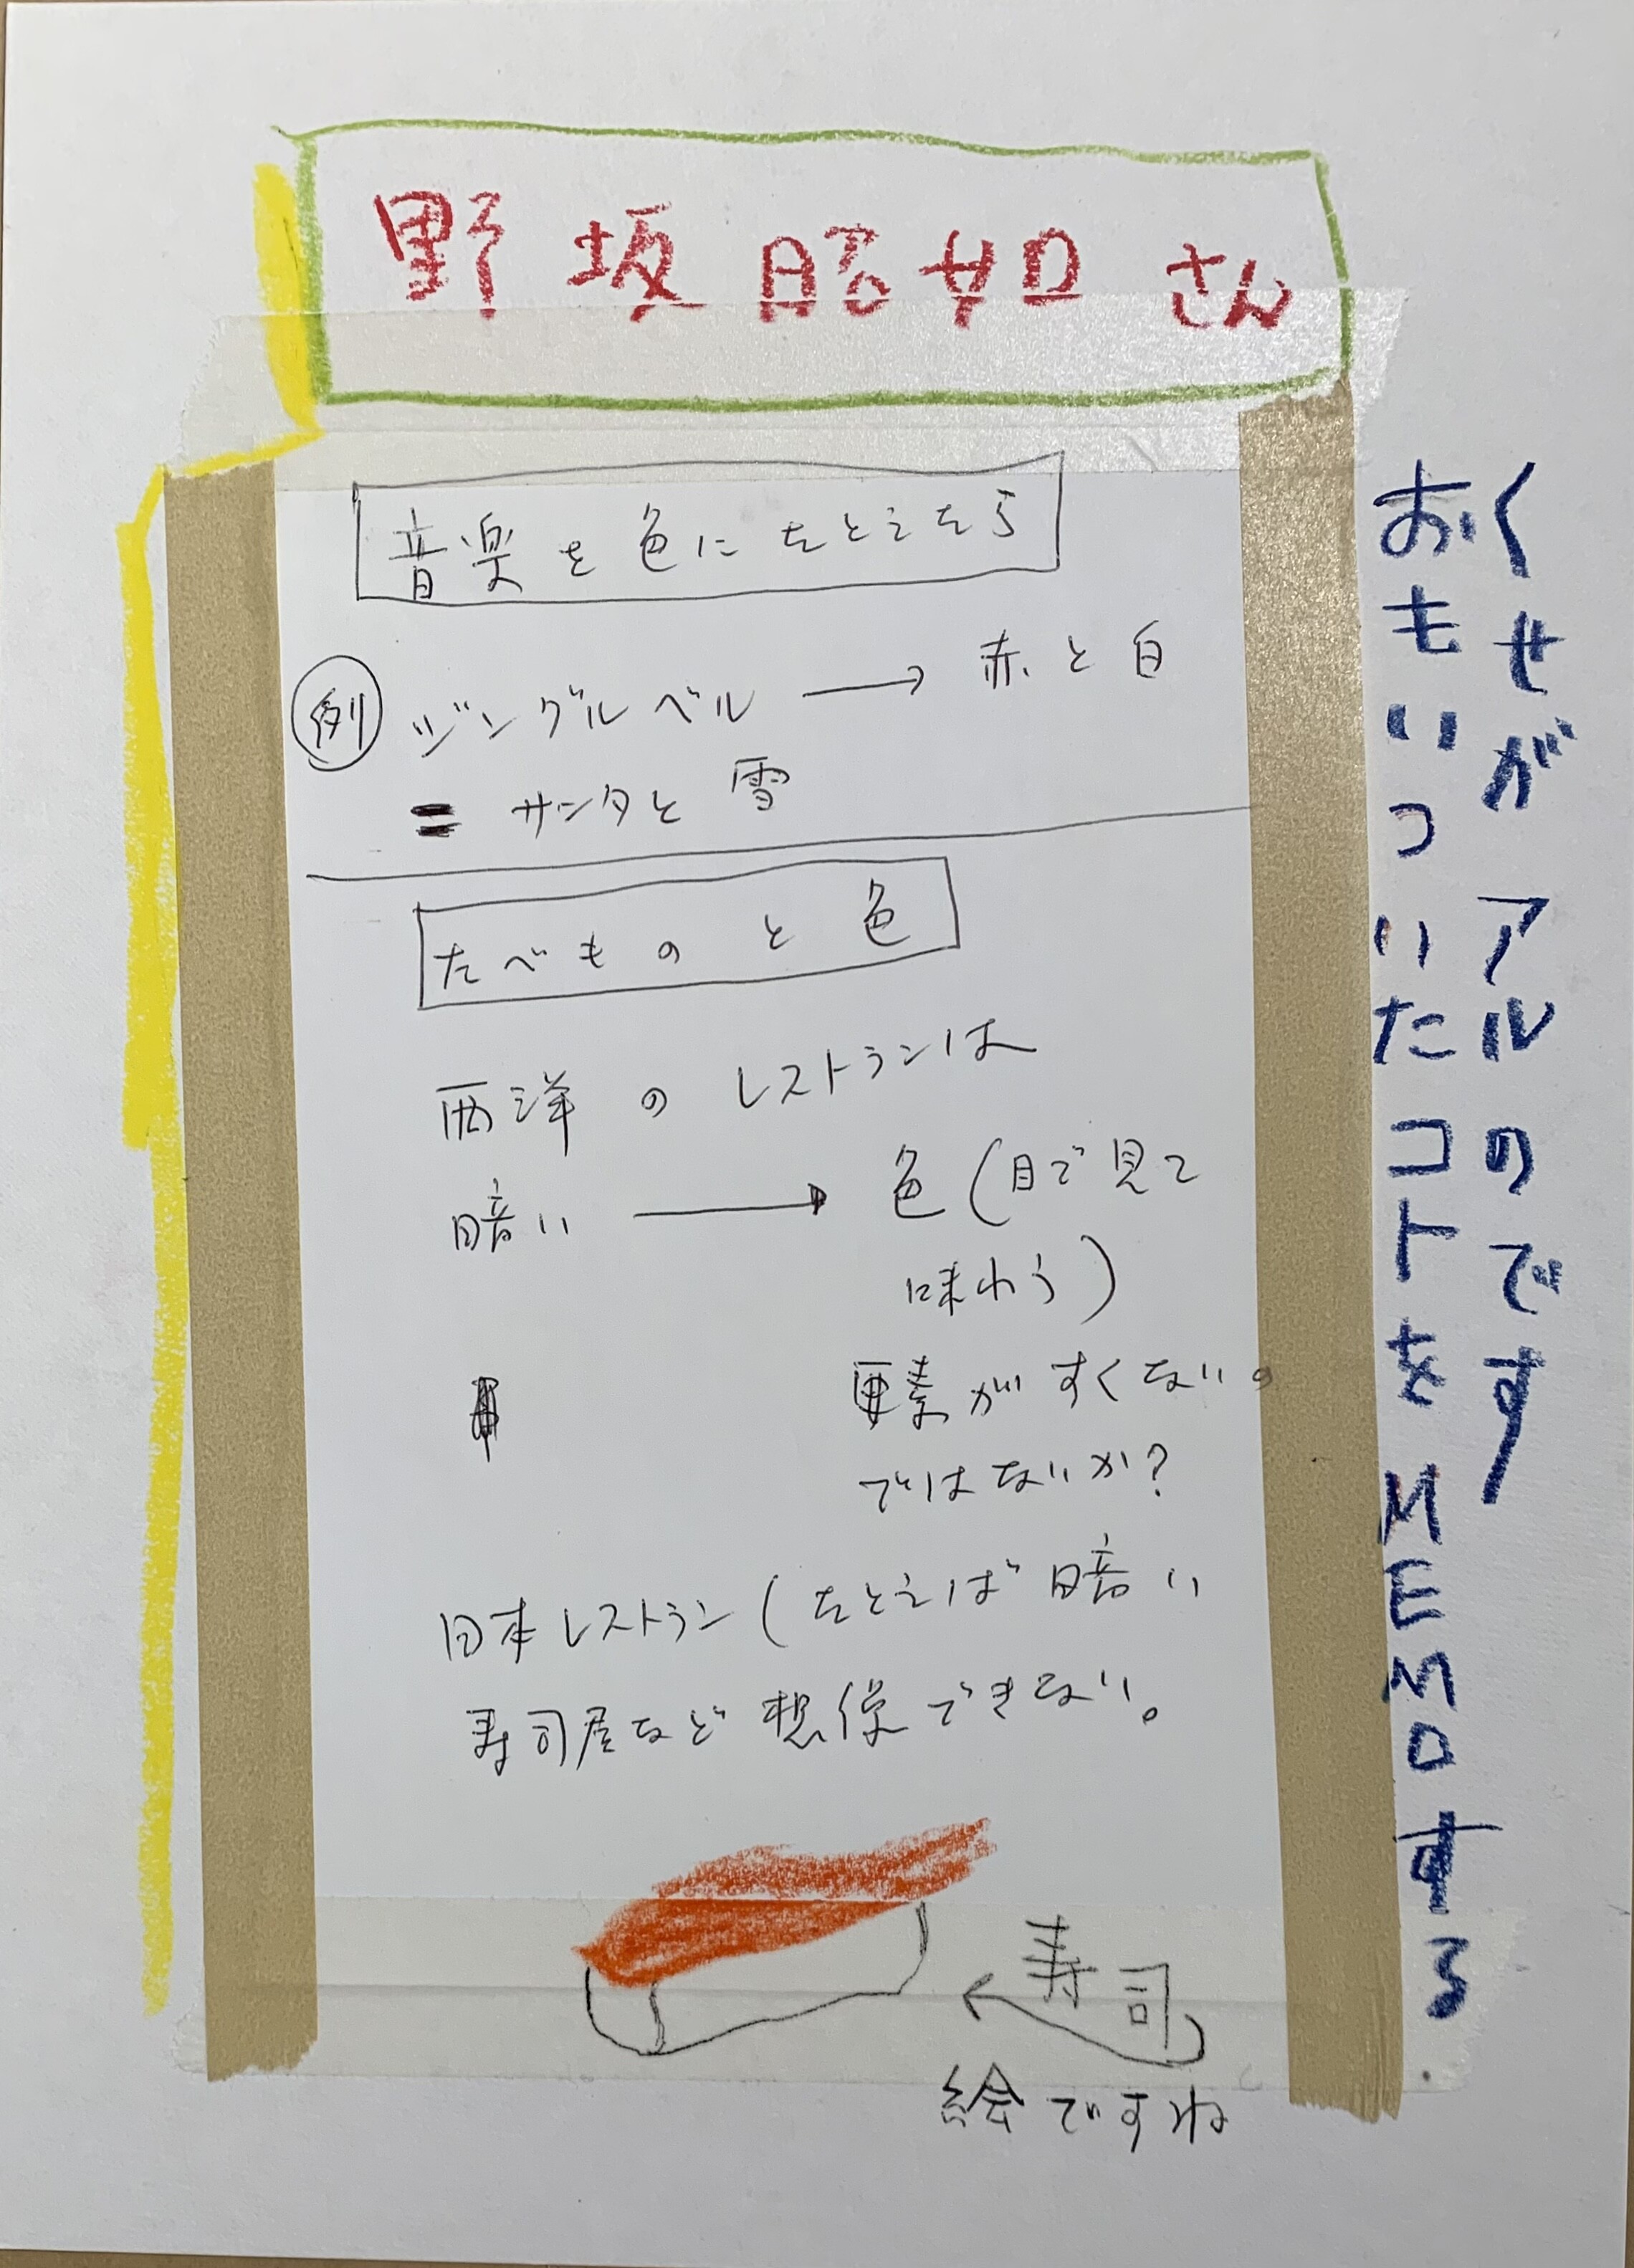 野坂昭如さん
音楽を色にたとえたら
例 ジングルベル → 赤と白
= サンタと雪
たべものと色
西洋のレストランは
暗い → 色(目で見て
味わう)
要素がすくない。
ではないか?
日本レストラン(たとえば暗い
寿司屋など想像できない。
寿司
絵ですね
くせがアルのです
おもいついたコトをMEMOする